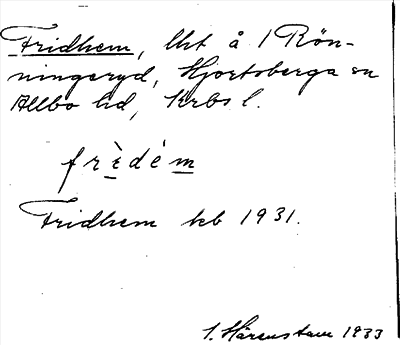 Fridhem, lht å 1 Rön-
ningeryd, Hjortsberga sn
Allbo hd, Krbs l.
frìdém
Fridhem kb 1931.
1933